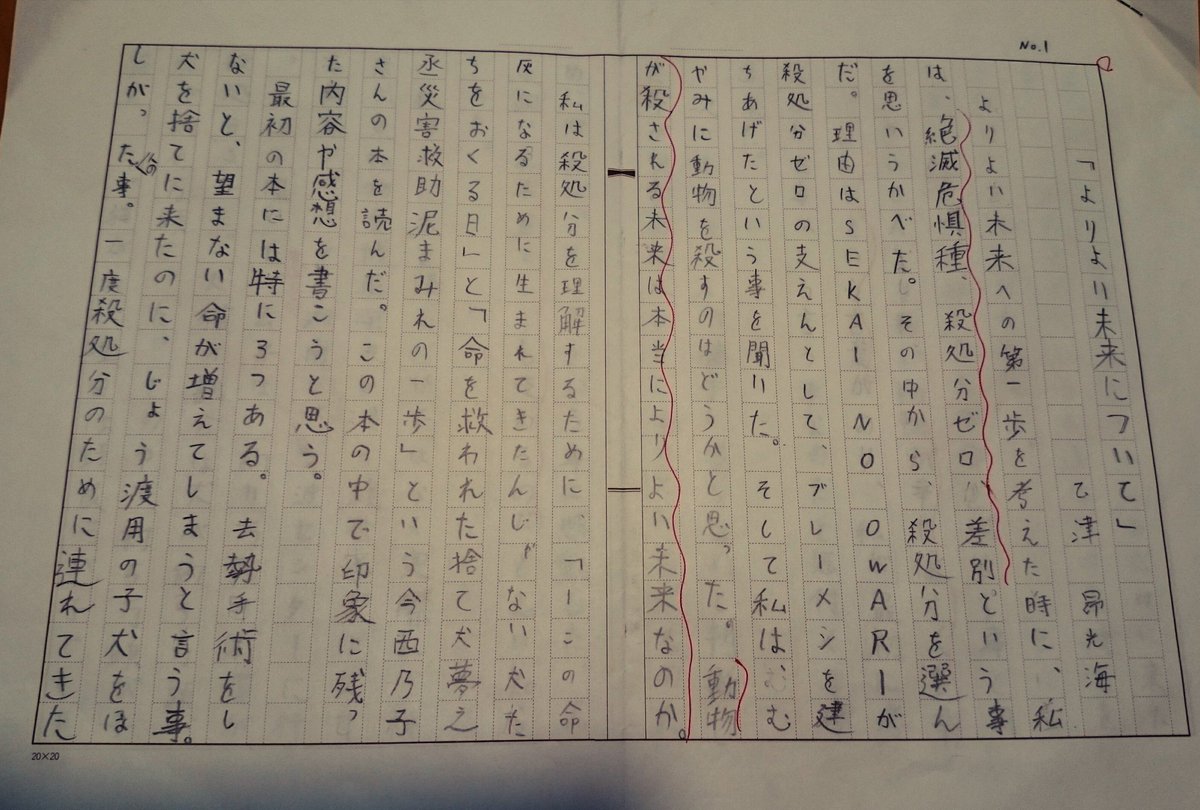 No.1
「よりよい未来について」
乙津 昴光海
よりよい未来への第一歩を考えた時に、私
は、絶滅危惧種、殺処分ゼロ、差別という事
を思いうかべた。その中から、殺処分を選ん
だ。理由はSEKAI NO OWARIが
殺処分ゼロの支えんとして、ブレーメンを建
ちあげたという事を聞いた。そして私はむ
やみに動物を殺すのはどうかと思った。動物
が殺される未来は本当によりよい未来なのか。
私は殺処分を理解するために、「この命
灰になるために生まれてきたんじゃない犬た
ちをおくる日」と「命を救われた捨て犬夢之
丞災害救助泥まみれの一歩」という今西乃子
さんの本を読んだ。この本の中で印象に残っ
た内容や感想を書こうと思う。
最初の本には特に3つある。去勢手術をし
ないと、望まない命が増えてしまうと言う事。
犬を捨てに来たのに、じょう渡用の子犬をほ
しがった人の事。一度殺処分のために連れてきた
20×20